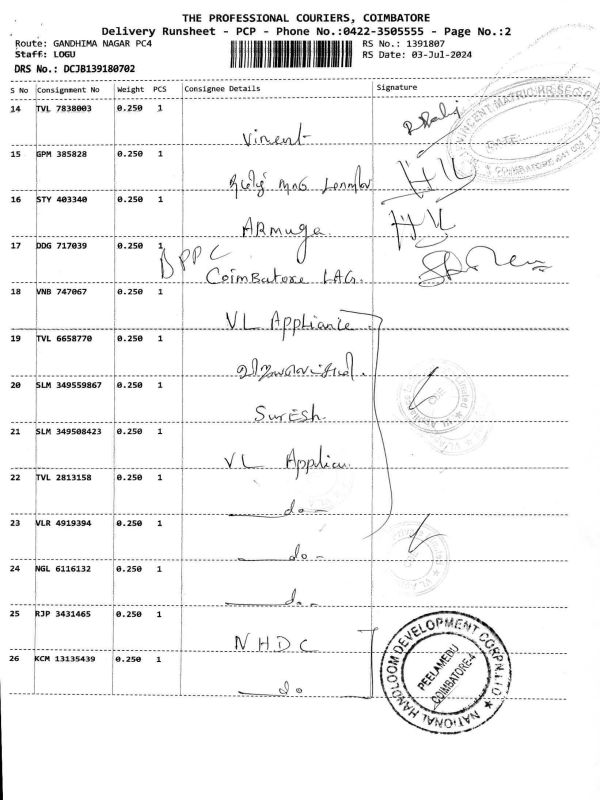 THE PROFESSIONAL COURIERS, COIMBATORE
Delivery Runsheet - PCP - Phone No.:0422-3505555 - Page No.:2
Route: GANDHIMA NAGAR PC4 RS No.: 1391807
Staff: LOGU RS Date: 03-Jul-2024
DRS No.: DCJB139180702
S No Consignment No Weight PCS Consignee Details Signature
14 TVL 7838003 0.250 1
Vincent
15 GPM 385828 0.250 1
16 STY 403340 0.250 1
ARmuga
17 DDG 717039 0.250 1
BPPC
Coimbatore LAG.
18 VNB 747067 0.250 1
VL Appliance
19 TVL 6658770 0.250 1
20 SLM 349559867 0.250 1
Suresh
21 SLM 349508423 0.250 1
VL Applian
22 TVL 2813158 0.250 1
do -
23 VLR 4919394 0.250 1
do -
24 NGL 6116132 0.250 1
do -
25 RJP 3431465 0.250 1
NHDC
26 KCM 13135439 0.250 1
do
VINCENT MATRIC HR SEC
DATE:
COIMBATORE
NATIONAL HANDLOOM DEVELOPMENT CORPN.LTD
PEELAMEDU
COIMBATORE-4